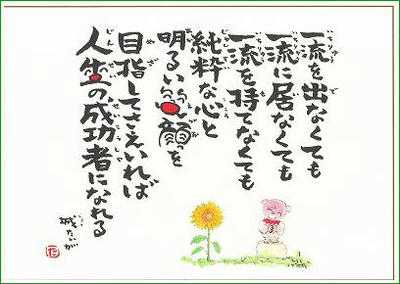 一流を出なくても
一流に居なくても
一流を持てなくても
純粋な心と
明るい笑顔を
目指してさえいれば
人生の成功者になれる
城たいが